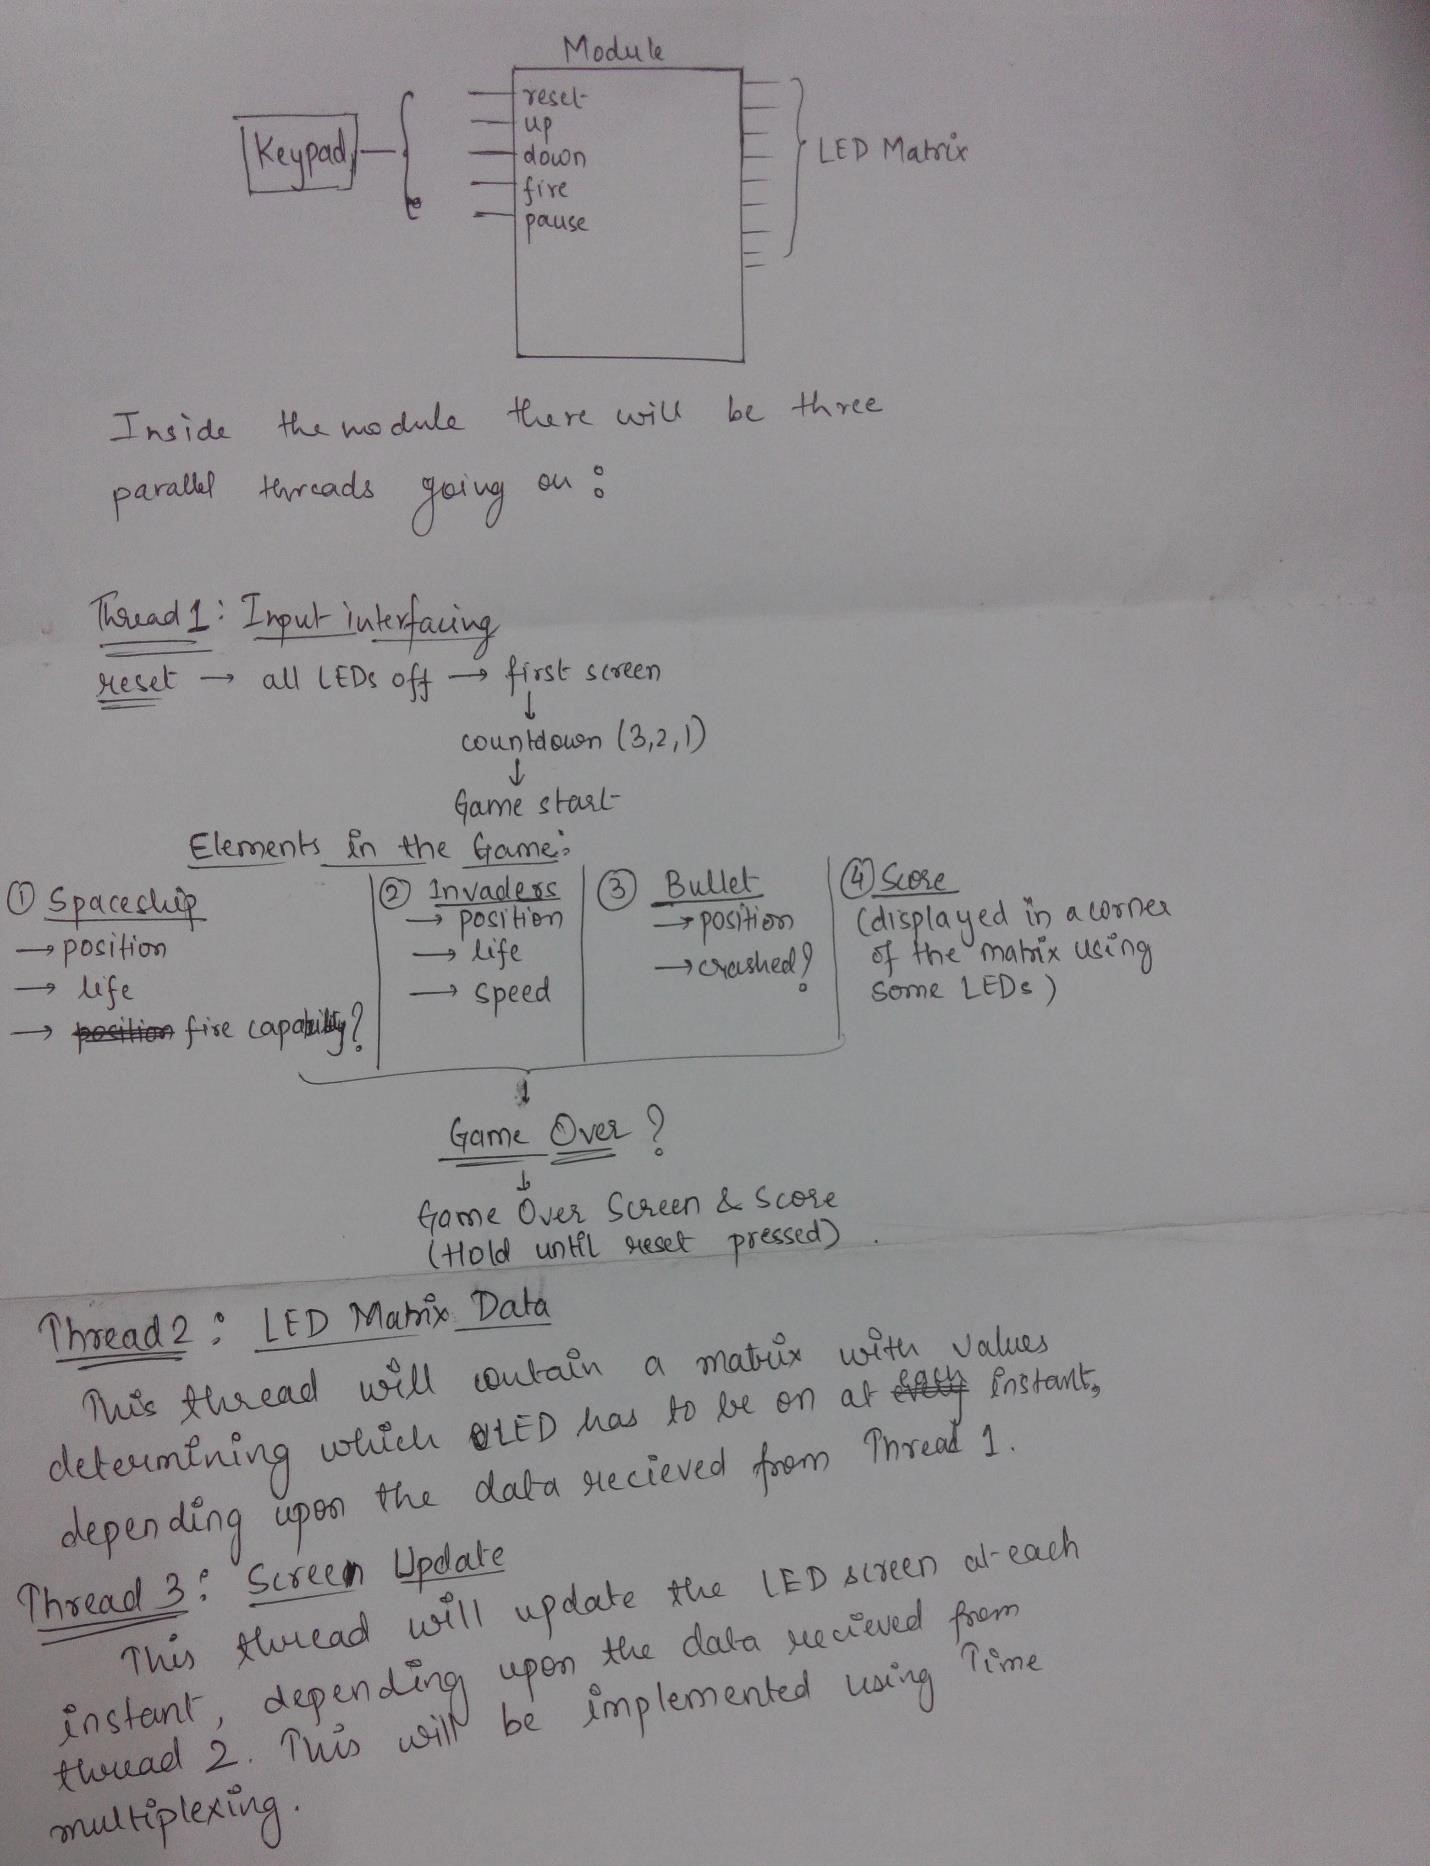 Module
reset
up
down
fire
pause
Keypad
LED Matrix
Inside the module there will be three
parallel threads going on:
Thread 1: Input interfacing
reset → all LEDs off → first screen
↓
countdown (3,2,1)
↓
Game start
Elements in the Game:
① Spaceship
→ position
→ life
→ position fire capability?
② Invaders
→ position
→ life
→ speed
③ Bullet
→ position
→ crashed?
④ Score
(displayed in a corner
of the matrix using
some LEDs)
↓
Game Over?
↓
Game Over Screen & Score
(Hold until reset pressed).
Thread 2: LED Matrix Data
This thread will contain a matrix with values
determining which LED has to be on at each instant,
depending upon the data recieved from Thread 1.
Thread 3: Screen Update
This thread will update the LED screen at each
instant, depending upon the data recieved from
thread 2. This will be implemented using Time
multiplexing.